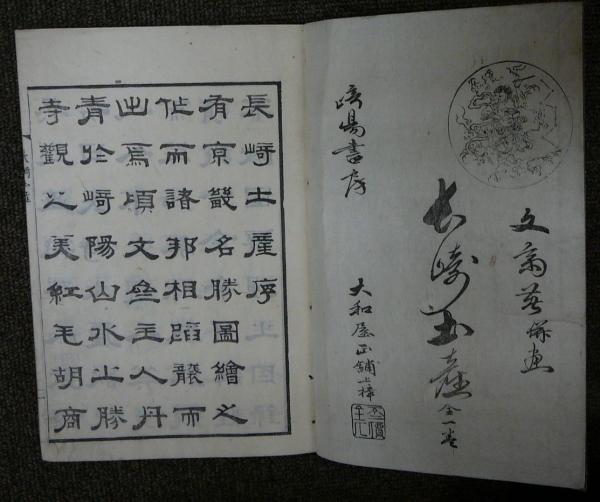 文齋著併画
長崎土産 全一巻
崎陽書房
大和屋正舗上梓
長崎土産序
有京畿名勝圖繪之
作而諸邦相蹈襲而
出焉頃文齋主人丹
青於崎陽山水之勝
寺觀之美紅毛胡商